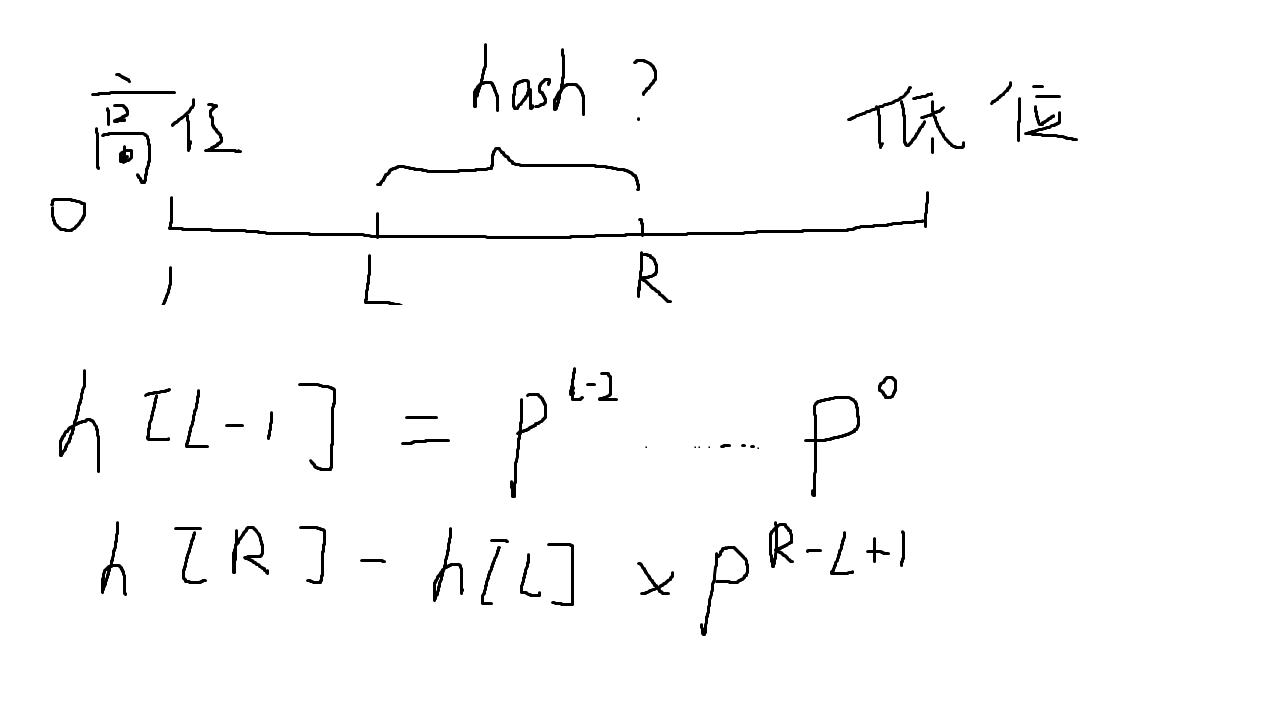 hash ?
高位 低位
0
1 L R
h[L-1] = p^{L-2} ...... p^0
h[R] - h[L] × p^{R-L+1}